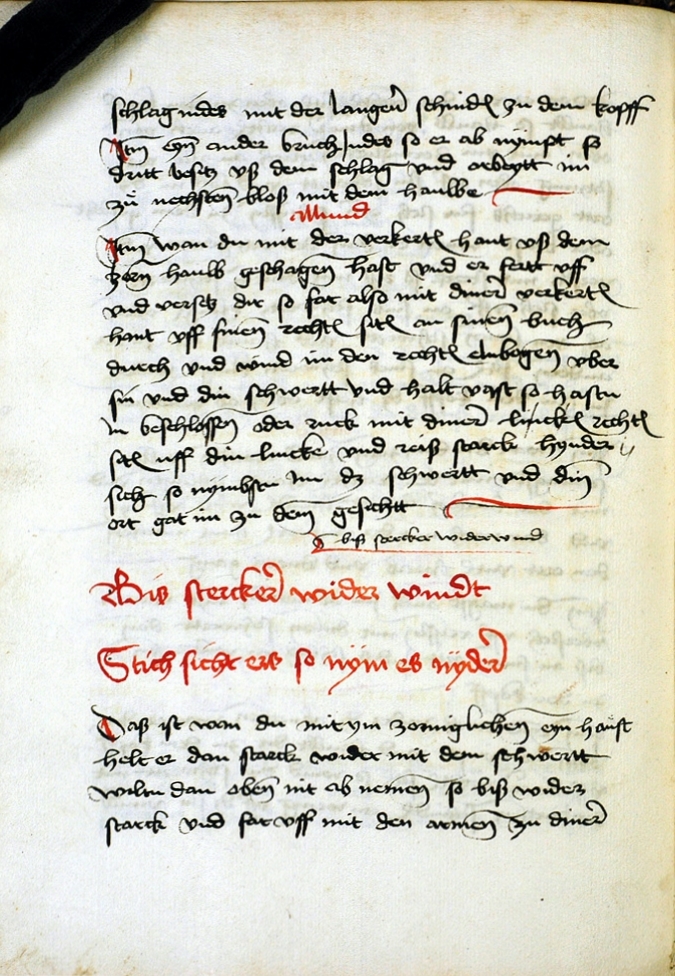 schlag indes mit der langen̄ schnidē zu dem kopff
Itm̄ eyn̄ ander bruch Indes so er ab nympt so
dritt besytz vß dem schlag vnd arbeytt im
zü nechsten bloß mit dem haulbe
Wind
Itm̄ wan du mit der verkertē hant vß dem
zorn̄ haulb geschagen̄ hast vnd er fertt vff
vnd versetz dir so far also mit diner̄ verkertē
hant vff sinen̄ rechtē sitē an sinen̄ buch
durch vnd wind im den rechtē elnbogen̄ vber
sin vnd din schwertt vnd halt vast so hastu
in beschlossen̄ oder ruck mit diner̄ linckē rechtē
sitē uff din lincke vnd reiß starck hynder
sich so nymbstu im dz schwertt vnd din̄
ort gat im zu dem̄ gesichtt
biß stercker widerwind
Bis stercker̄ wider windt
Stich sicht ers so nym es nyder̄
Daß ist wan du mit ym zorniglichen̄ eyn haüst
helt er dan starck wider mit dem schwertt
wiltu dan oben̄ nit ab nemen̄ so biß wider
starck vnd far vff mit den armen̄ zu diner̄